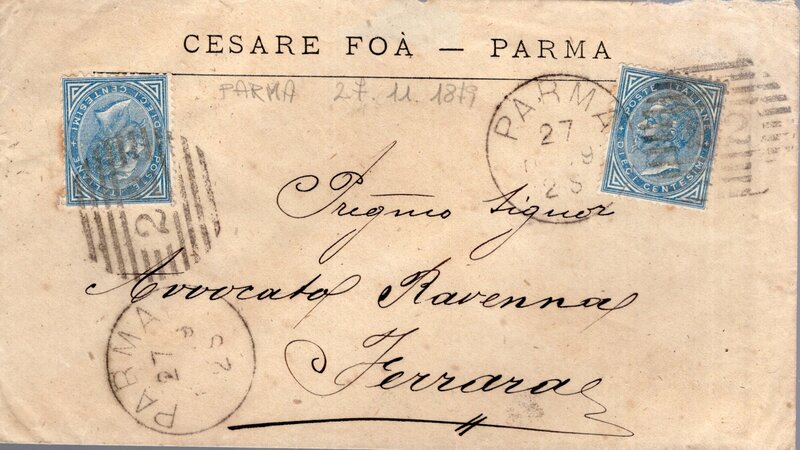 CESARE FOÀ — PARMA
PARMA 27.11.1879
POSTE ITALIANE
DIECI CENTESIMI
2
PARMA
27
POSTE ITALIANE
DIECI CENTESIMI
Pregmo Signor
Avvocato Ravenna
Ferrara
PARMA
27